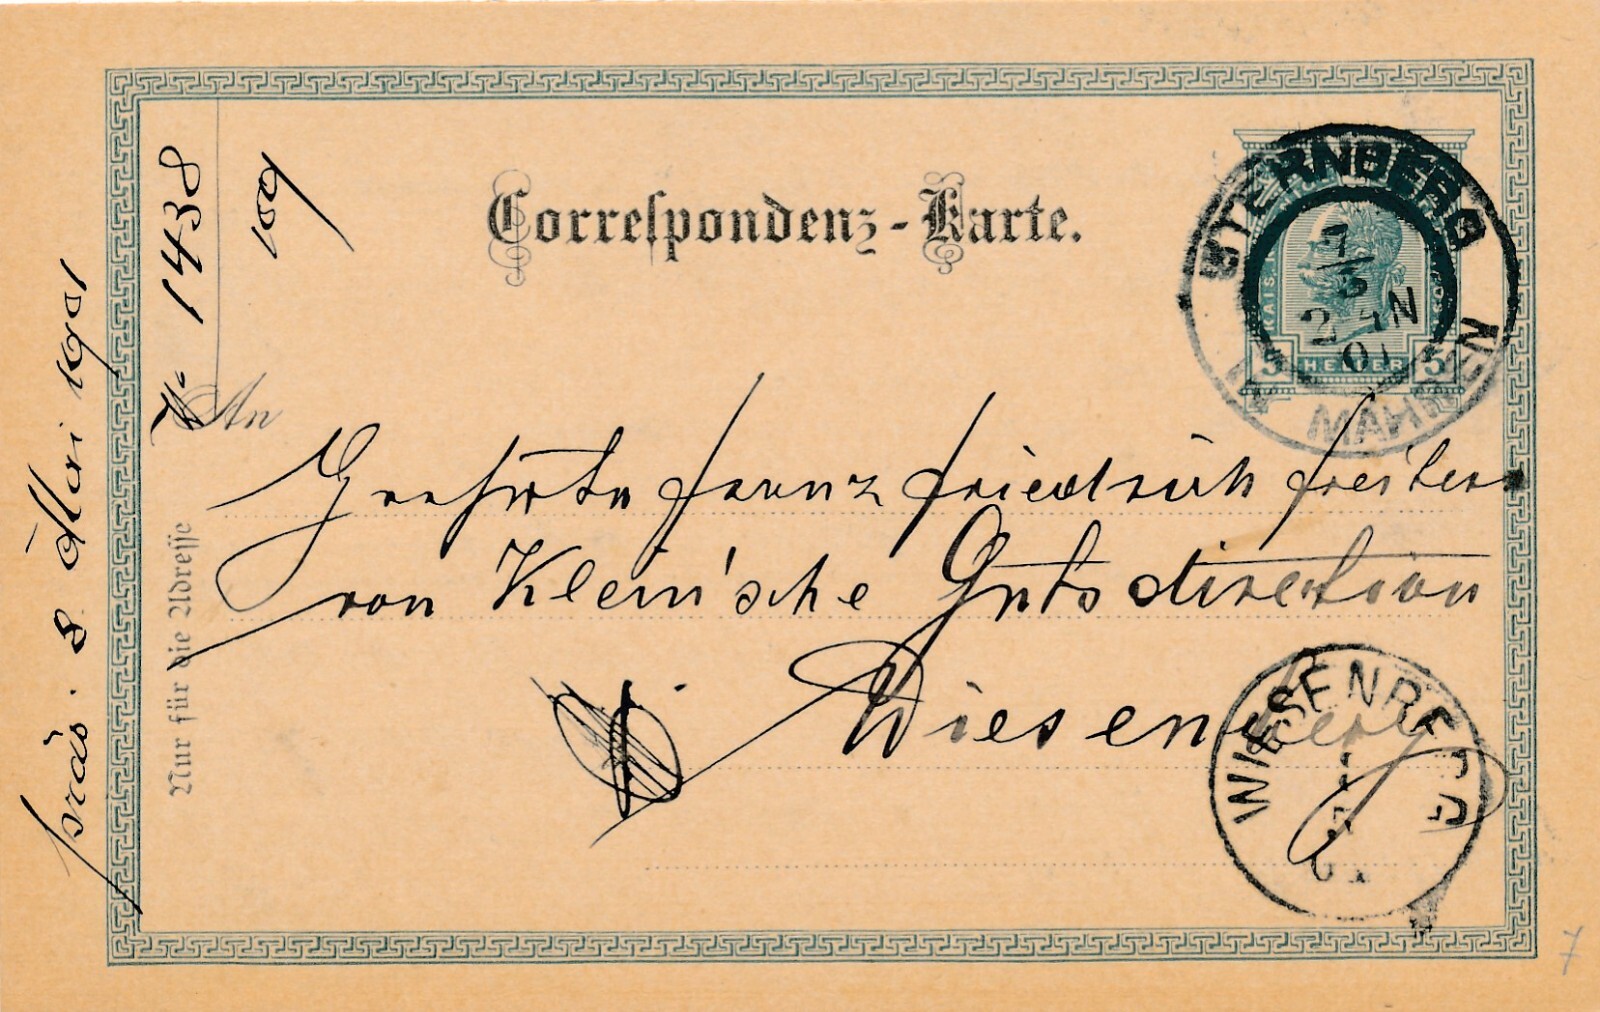 Correspondenz-Karte.
STERNBERG
MÄHREN
7/3
01
KAIS.
5 HELLER 5
An
Geehrte Franz Friedrich Freiherr
von Klein'sche Gutsdirektion
Wiesenberg
WIESENBERG
Nur für die Adresse
№ 1438
1901
präs. 8. März 1901
7